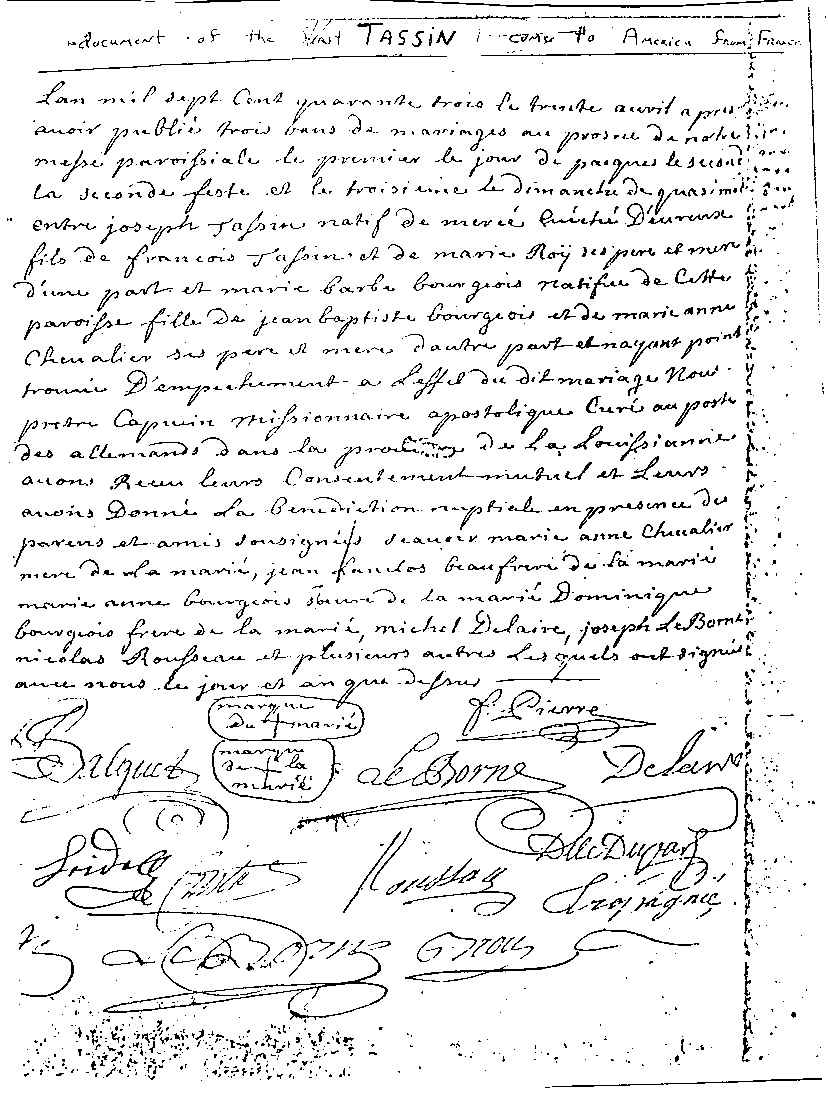 document of the first TASSIN comes to America from France
Lan mil sept Cent quarante trois le trente avril apres
avoir publié trois bans de mariages au prosne de notre
messe paroissiale le premier le jour de pasques le second
la seconde feste et le troisieme le dimanche de quasimodo
entre joseph Tassin natif de mercé Evéché D'évreux
fils de francois Tassin et de marie Roÿ ses pere et mere
d'une part et marie barbe bourgeois natifve de Cette
paroisse fille de jean baptiste bourgeois et de marie anne
Chevalier ses pere et mere dautre part et nayant point
trouvé D'empechement a Leffet du dit mariage Nous
pretre Capucin missionnaire apostolique Curé au poste
des allemands dans la province de La Louissianne
avons Receu leurs Consentement mutuel et Leurs
avons Donné La benediction nuptiale en presence des
parens et amis sousignés scavoir marie anne Chevalier
mere de La marié, jean beaufrere de la marié
marie anne bourgeois soeure de la marié Dominique
bourgeois frere de la marié, michel Delaire, joseph LeBorne
nicolas Rousseau et plusieurs autres Lesquels ont signés
avec nous le jour et an que dessus
marque
du + marié
f. Pierre
marque
de + la
marié
LeBorne
Delaire